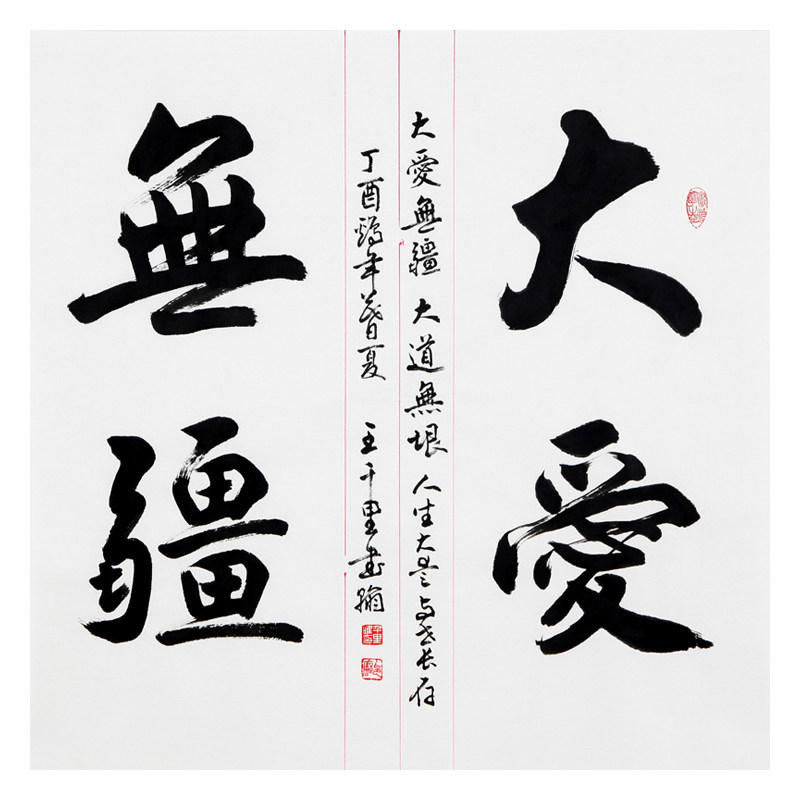 大愛
無疆
大愛無疆 大道無垠 人生大 与世长存
丁酉鷄年暮夏 王千里書翰